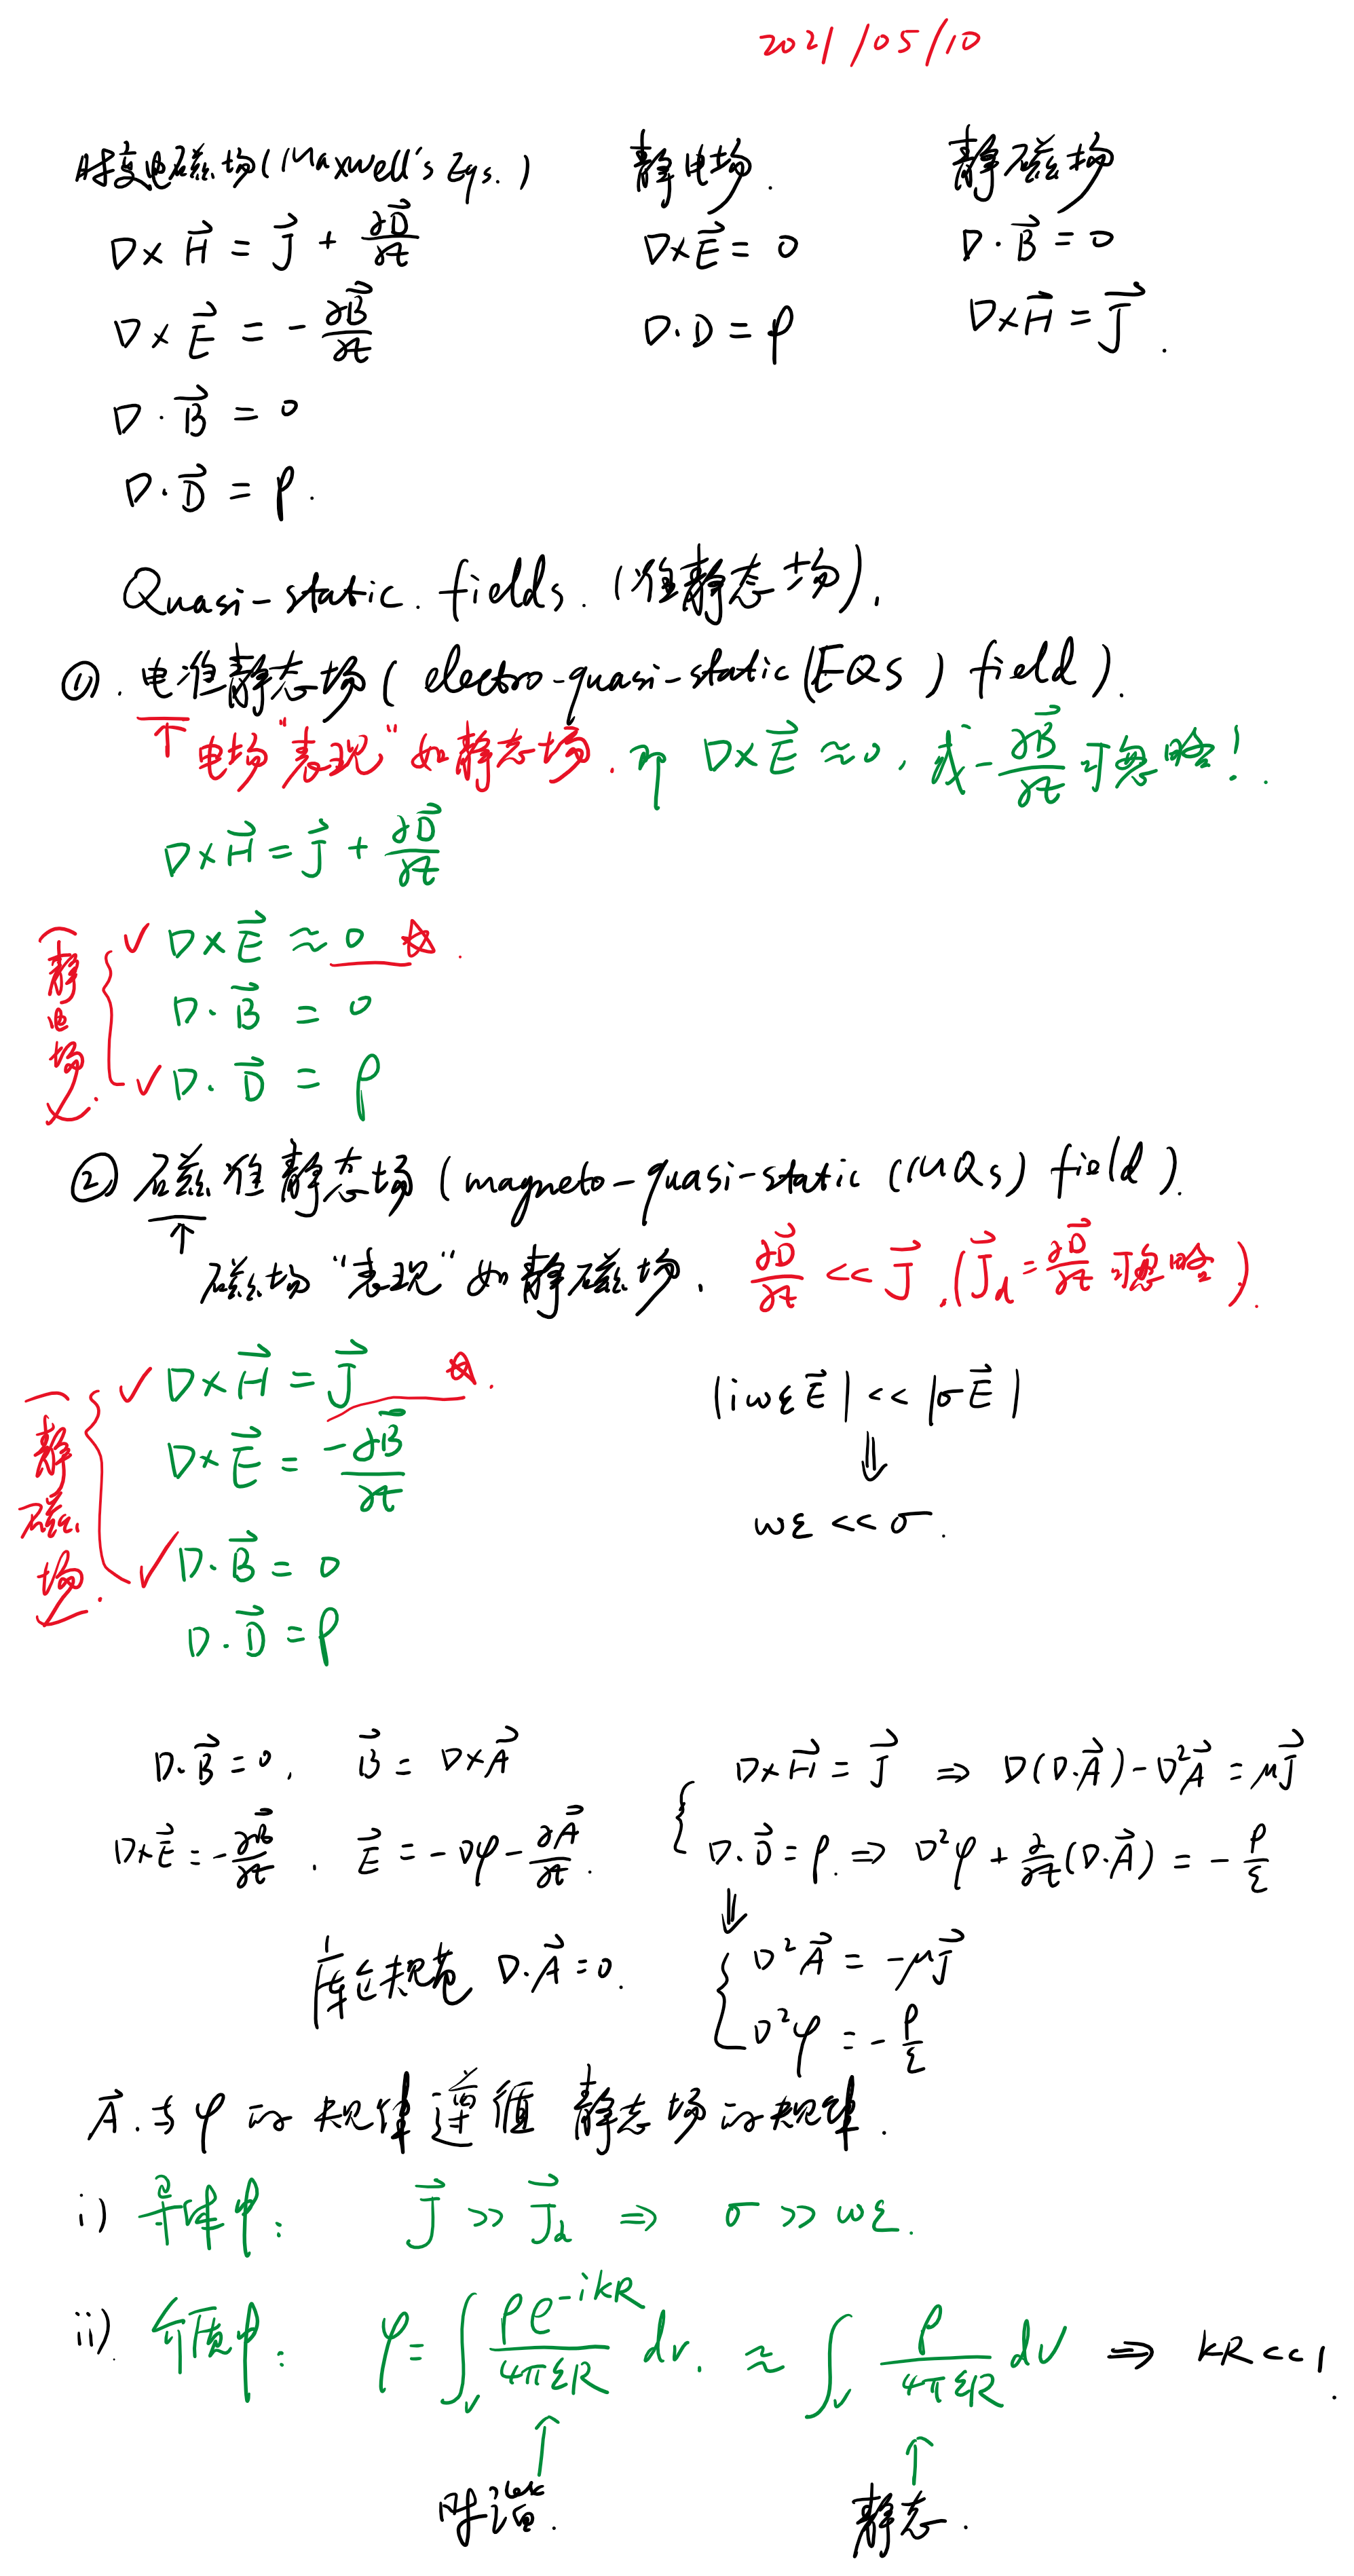 2021/05/10
时变电磁场(Maxwell's Eqs.) 静电场. 静磁场
∇×H⃗ = J⃗ + ∂D⃗/∂t ∇×E⃗ = 0 ∇·B⃗ = 0
∇×E⃗ = -∂B⃗/∂t ∇·D = ρ ∇×H⃗ = J⃗.
∇·B⃗ = 0
∇·D⃗ = ρ.
Quasi-static. fields. (准静态场).
①. 电准静态场( electro-quasi-static(EQS) field).
↑ 电场“表现”如静态场. 即 ∇×E⃗ ≈ 0, 或 -∂B⃗/∂t 可忽略!.
∇×H⃗ = J⃗ + ∂D⃗/∂t
✓ ∇×E⃗ ≈ 0 ☆.
∇·B⃗ = 0
✓ ∇·D⃗ = ρ
(静电场).
② 磁准静态场(magneto-quasi-static (MQS) field).
↑
磁场“表现”如静磁场. ∂D⃗/∂t << J⃗.(J⃗d = ∂D⃗/∂t 可忽略).
✓ ∇×H⃗ = J⃗ ☆. |iωεE⃗| << |σE⃗|
∇×E⃗ = -∂B⃗/∂t ⇓
ωε << σ.
✓ ∇·B⃗ = 0
∇·D⃗ = ρ
(静磁场).
∇·B⃗ = 0, B⃗ = ∇×A⃗ ∇×H⃗ = J⃗ ⇒ ∇(∇·A⃗) - ∇²A⃗ = μJ⃗
∇×E⃗ = -∂B⃗/∂t. E⃗ = -∇φ - ∂A⃗/∂t. ∇·D⃗ = ρ. ⇒ ∇²φ + ∂/∂t(∇·A⃗) = -ρ/ε
⇓
库仑规范 ∇·A⃗ = 0. ∇²A⃗ = -μJ⃗
∇²φ = -ρ/ε
A⃗.与φ的规律遵循 静态场的规律.
i) 导体中: J⃗ >> J⃗d ⇒ σ >> ωε.
ii). 介质中: φ = ∫v ρe^{-ikR}/4πεR dv. ≈ ∫v ρ/4πεR dv ⇒ kR << 1.
↑ ↑
时谐. 静态.